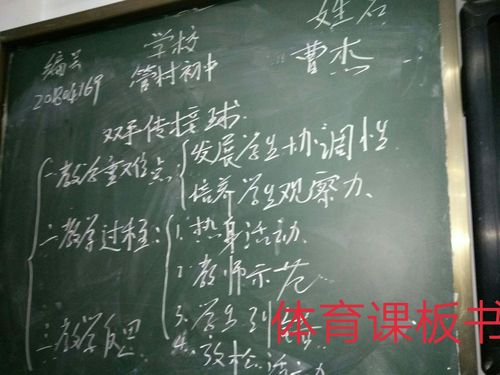 编号 学校 姓名
20180469 管村初中 曹杰
双手传接球
一教学重难点:发展学生协调性
培养学生观察力、
二教学过程:1.热身活动.
2 教师示范
3.学生
三.教学反思. 4.放松活动
体育课板书